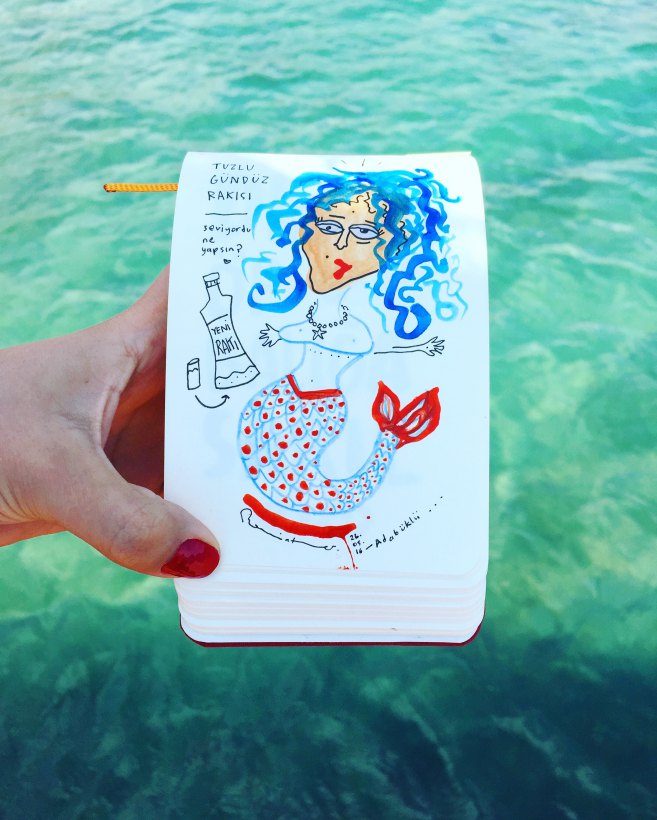 TUZLU
GÜNDÜZ
RAKISI
seviyordu
ne
yapsın?
YENİ
RAKI
26.
05.
16